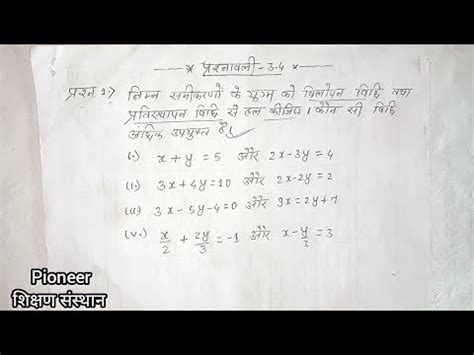 * प्रश्नावली - 3.4 *
प्रश्न 1:) निम्न समीकरणों के युग्म को विलोपन विधि तथा
प्रतिस्थापन विधि से हल कीजिए। कौन सी विधि
अधिक उपयुक्त है।
(i.) x + y = 5 और 2x - 3y = 4
(ii.) 3x + 4y = 10 और 2x - 2y = 2
(iii) 3x - 5y - 4 = 0 और 9x = 2y + 7
(iv.) x/2 + 2y/3 = -1 और x - y/3 = 3
Pioneer
शिक्षण संस्थान